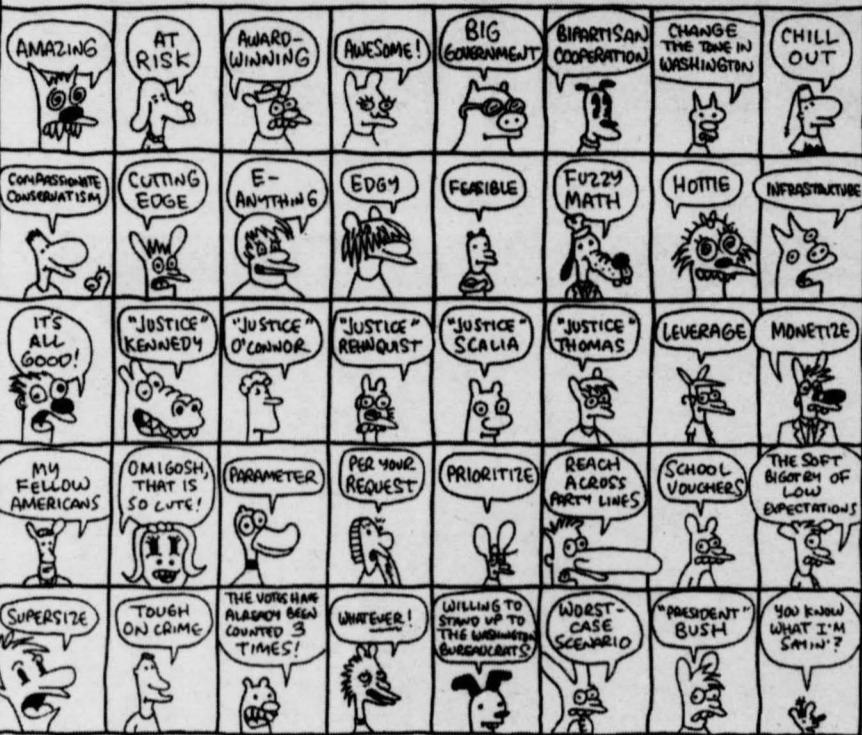 AMAZING
AT
RISK
AWARD-
WINNING
AWESOME!
BIG
GOVERNMENT
BIPARTISAN
COOPERATION
CHANGE
THE TONE IN
WASHINGTON
CHILL
OUT
COMPASSIONATE
CONSERVATISM
CUTTING
EDGE
E-
ANYTHING
EDGY
FEASIBLE
FUZZY
MATH
HOTTIE
INFRASTRUKTURE
IT'S
ALL
GOOD!
"JUSTICE"
KENNEDY
"JUSTICE"
O'CONNOR
"JUSTICE"
REHNQUIST
"JUSTICE"
SCALIA
"JUSTICE"
THOMAS
LEVERAGE
MONETIZE
MY
FELLOW
AMERICANS
OMIGOSH,
THAT IS
SO CUTE!
PARAMETER
PER YOUR
REQUEST
PRIORITIZE
REACH
ACROSS
PARTY LINES
SCHOOL
VOUCHERS
THE SOFT
BIGOTRY OF
LOW
EXPECTATIONS
SUPERSIZE
TOUGH
ON CRIME
THE VOTES HAVE
ALREADY BEEN
COUNTED 3
TIMES!
WHATEVER!
WILLING TO
STAND UP TO
THE WASHINGTON
BUREAUCRATS
WORST-
CASE
SCENARIO
"PRESIDENT"
BUSH
YOU KNOW
WHAT I'M
SAYIN'?